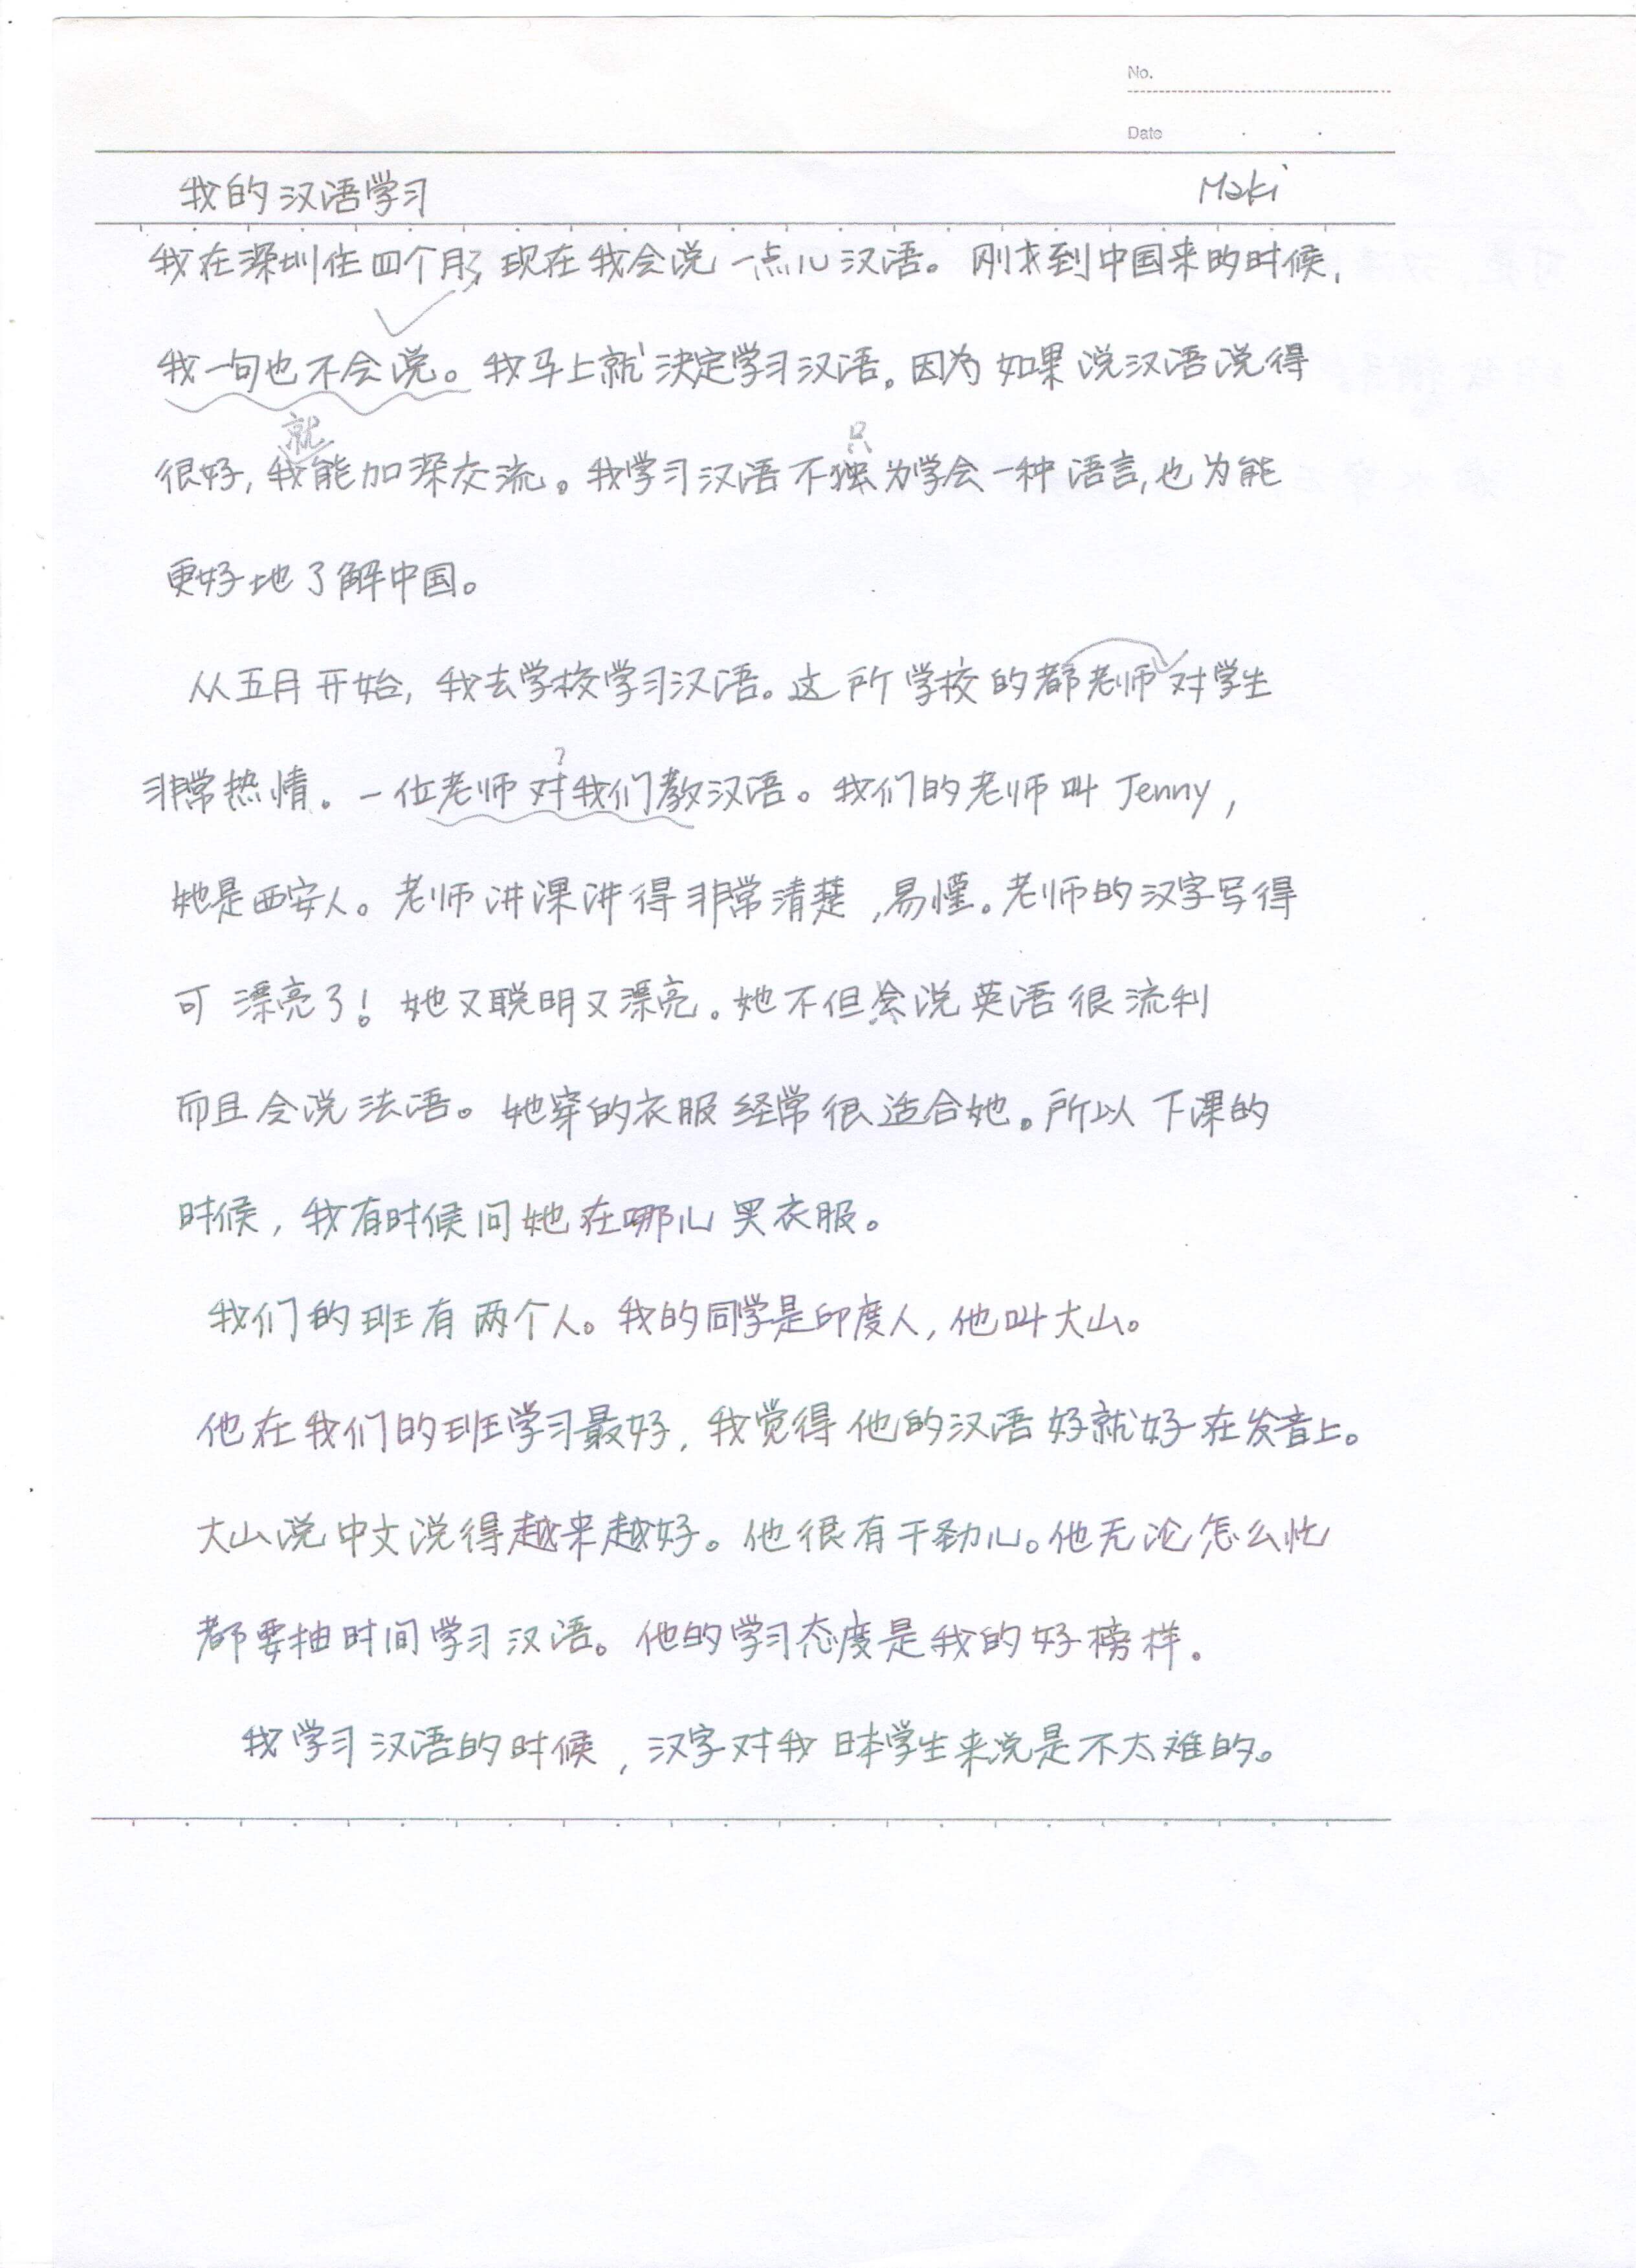 No.
Date
我的汉语学习 Maki
我在深圳住四个月了 现在我会说一点儿汉语。刚才到中国来的时候,
我一句也不会说。我马上就决定学习汉语。因为如果说汉语说得
就 只
很好, 我能加深交流。我学习汉语不独为学会一种语言, 也为能
更好地了解中国。
从五月开始, 我去学校学习汉语。这所学校的都老师对学生
?
非常热情。一位老师对我们教汉语。我们的老师叫 Jenny,
她是西安人。老师讲课讲得非常清楚, 易懂。老师的汉字写得
可漂亮了! 她又聪明又漂亮。她不但会说英语很流利
而且会说法语。她穿的衣服经常很适合她。所以下课的
时候, 我有时候问她在哪儿买衣服。
我们的班有两个人。我的同学是印度人, 他叫大山。
他在我们的班学习最好, 我觉得他的汉语好就好在发音上。
大山说中文说得越来越好。他很有干劲儿。他无论怎么忙
都要抽时间学习汉语。他的学习态度是我的好榜样。
我学习汉语的时候, 汉字对我日本学生来说是不太难的。